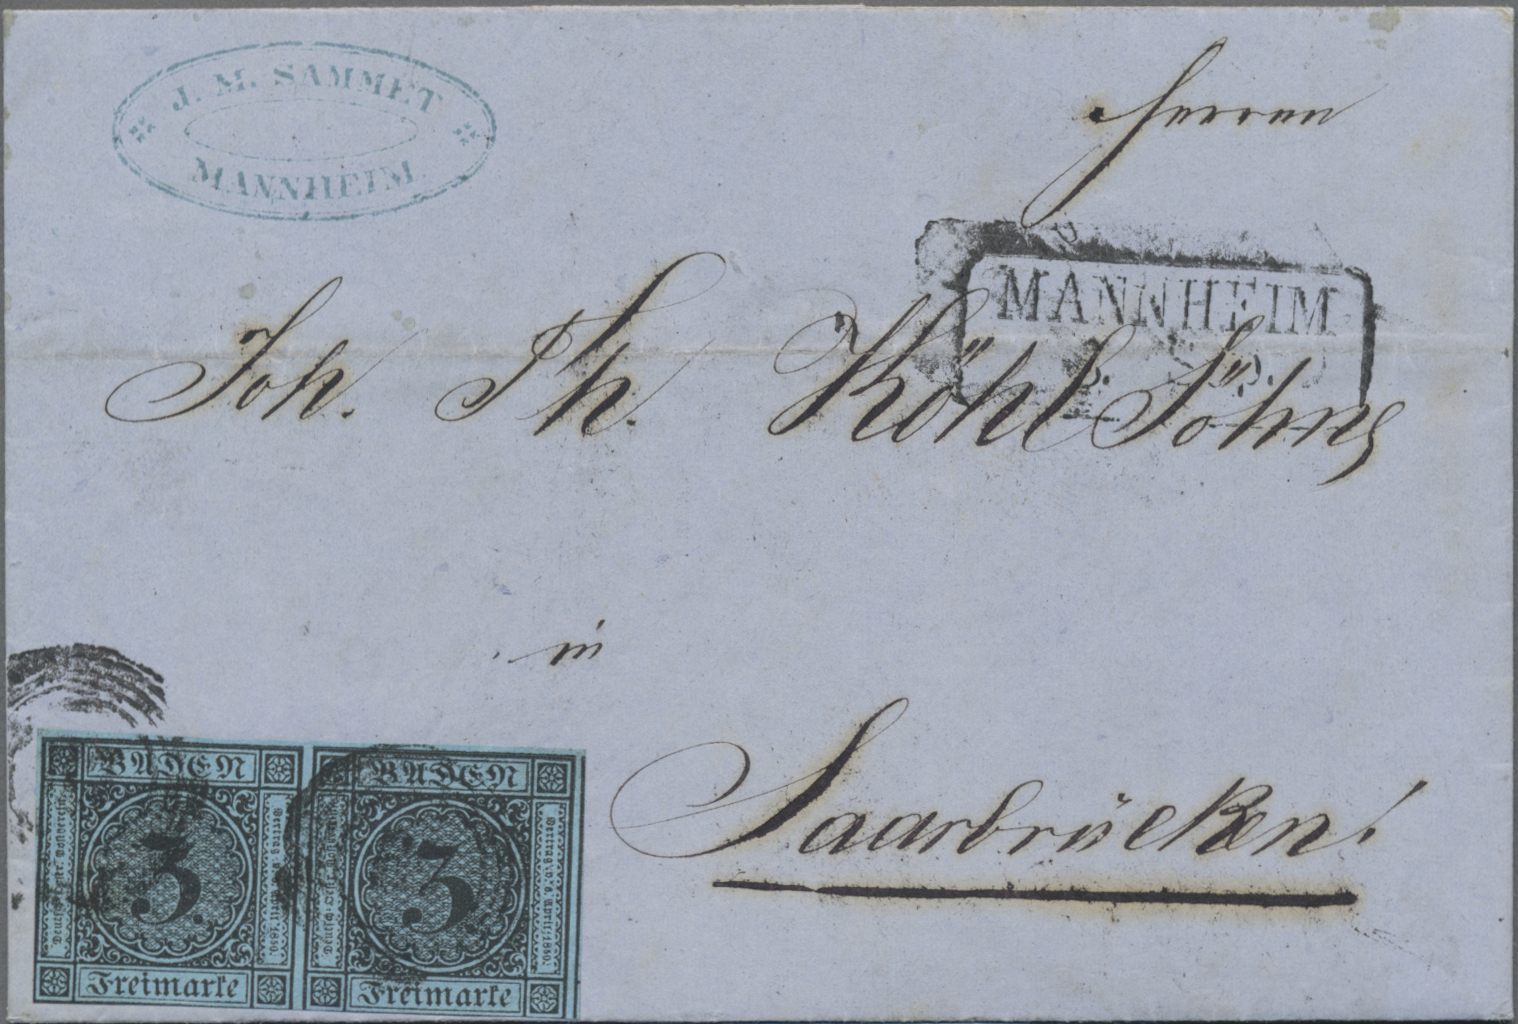 J. M. SAMMET
MANNHEIM
Herren
MANNHEIM
Joh. Th. Köhl Söhne
in
Saarbrücken!
BADEN
3.
Freimarke
BADEN
3.
Freimarke